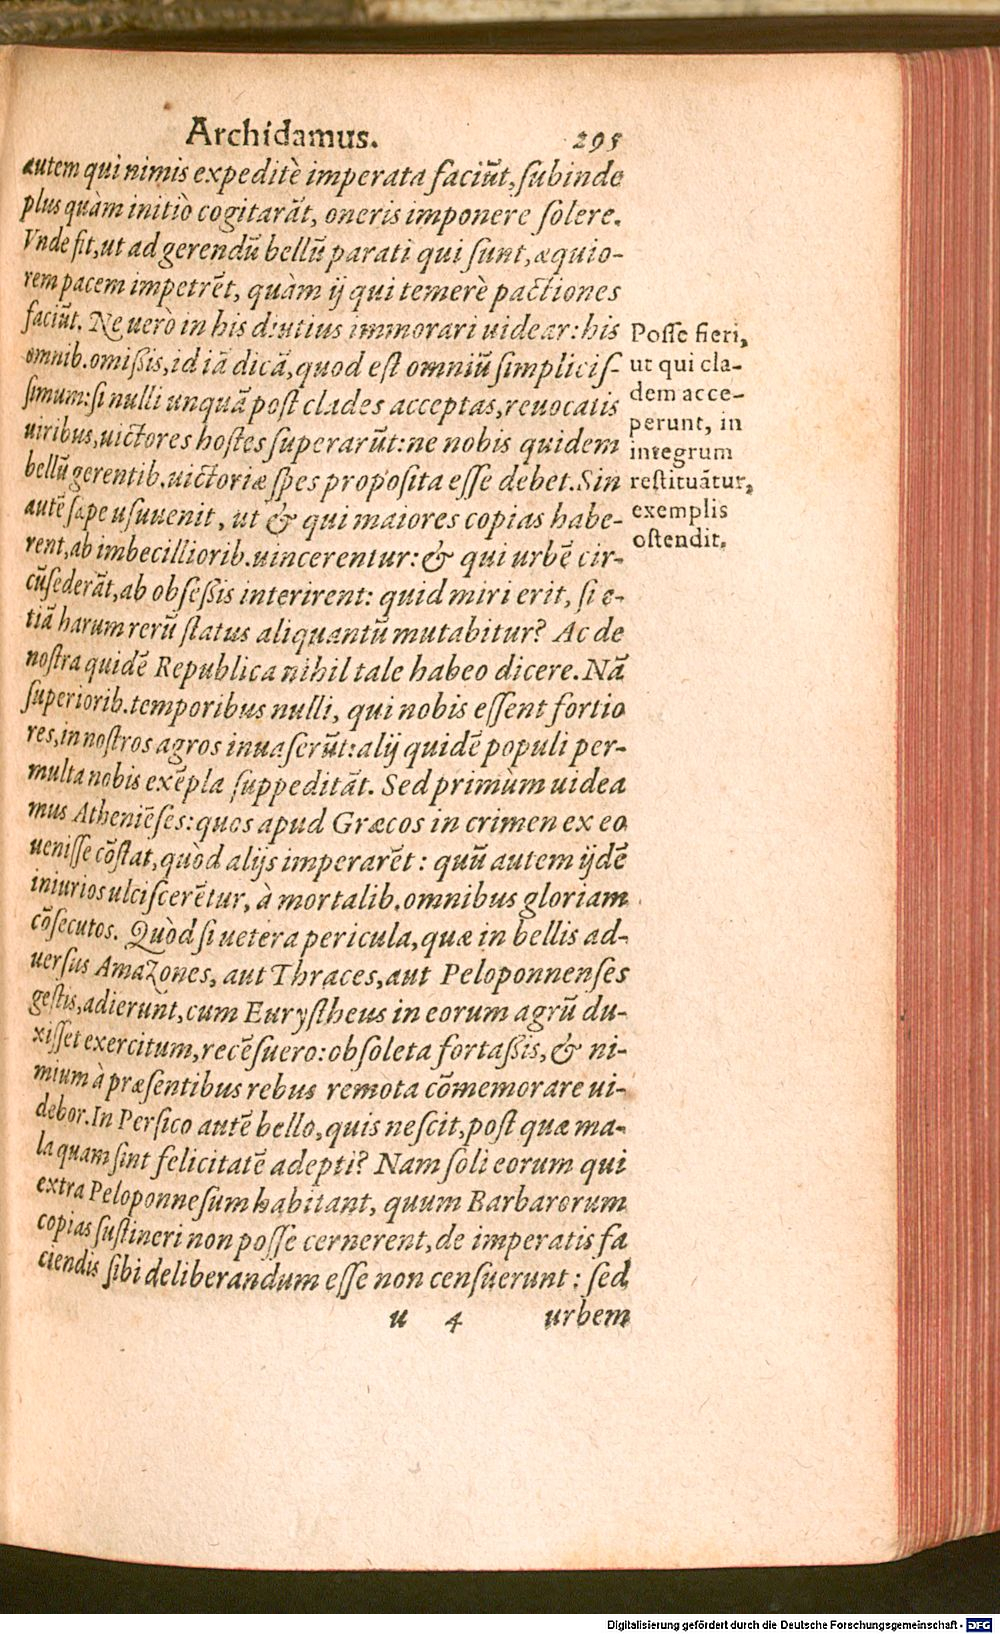 Archidamus. 295
autem qui nimis expeditè imperata faciũt, subinde
plus quàm initiò cogitarãt, oneris imponere solere.
Vnde fit, ut ad gerendũ bellũ parati qui sunt, æquio-
rem pacem impetrẽt, quàm ij qui temerè pactiones
faciũt. Ne uerò in his diutius immorari uidear: his
omnib. omißis, id iã dicã, quod est omniũ simplicis-
simum: si nulli unquã post clades acceptas, reuocatis
uiribus, uictores hostes superarũt: ne nobis quidem
bellũ gerentib. uictoriæ spes proposita esse debet. Sin
autẽ sæpe usuuenit, ut & qui maiores copias habe-
rent, ab imbecilliorib. uincerentur: & qui urbẽ cir-
cũsederãt, ab obseßis interirent: quid miri erit, si e-
tiã harum rerũ status aliquantũ mutabitur? Ac de
nostra quidẽ Republica nihil tale habeo dicere. Nã
superiorib. temporibus nulli, qui nobis essent fortio
res, in nostros agros inuaserũt: alij quidẽ populi per-
multa nobis exẽpla suppeditãt. Sed primùm uidea
mus Atheniẽses: quos apud Græcos in crimen ex eo
uenisse cõstat, quòd alijs imperarẽt: quũ autem ijdẽ
iniurios ulciscerẽtur, à mortalib. omnibus gloriam
cõsecutos. Quòd si uetera pericula, quæ in bellis ad-
uersus Amazones, aut Thraces, aut Peloponnenses
gestis, adierunt, cum Eurystheus in eorum agrũ du-
xisset exercitum, recẽsuero: obsoleta fortaßis, & ni-
mium à præsentibus rebus remota cõmemorare ui-
debor. In Persico autẽ bello, quis nescit, post quæ ma-
la quam sint felicitatẽ adepti? Nam soli eorum qui
extra Peloponnesum habitant, quum Barbarorum
copias sustineri non posse cernerent, de imperatis fa
ciendis sibi deliberandum esse non censuerunt: sed
u 4 urbem
Posse fieri,
ut qui cla-
dem acce-
perunt, in
integrum
restituãtur,
exemplis
ostendit.
Digitalisierung gefördert durch die Deutsche Forschungsgemeinschaft - DFG